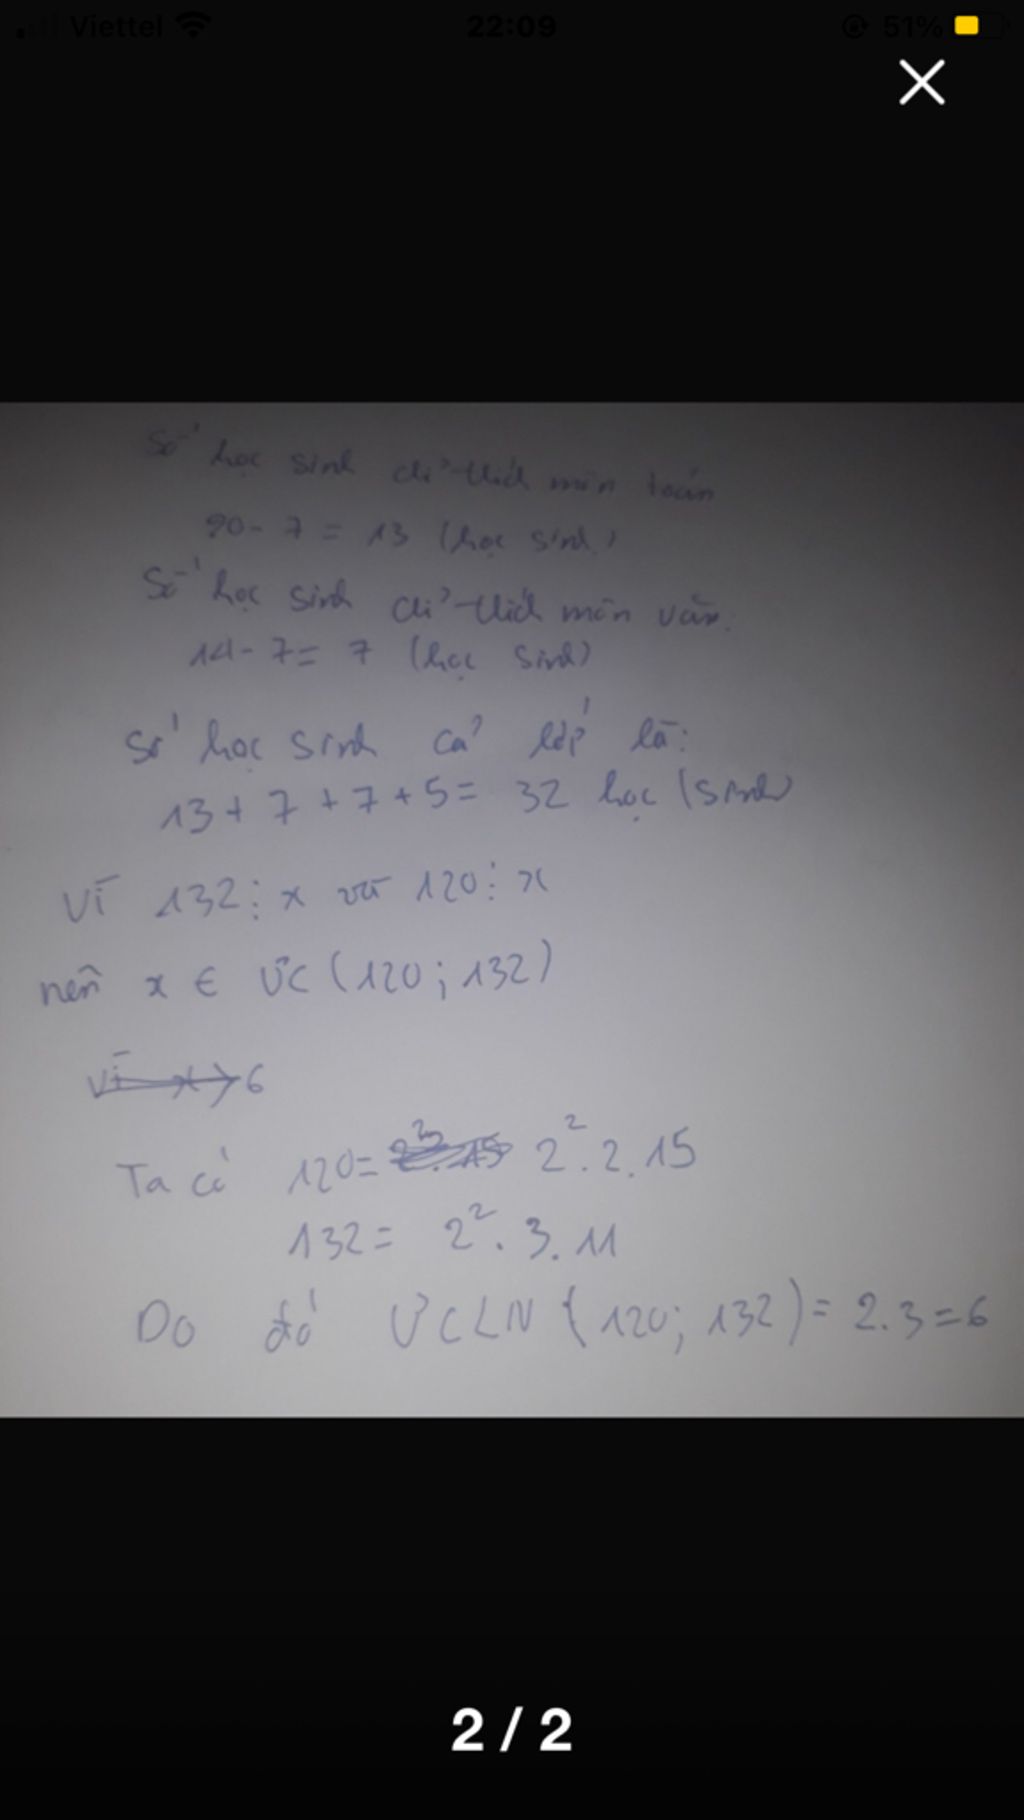 Viettel 22:09 51%
Số học sinh chỉ thích môn toán
20 - 7 = 13 (học sinh)
Số học sinh chỉ thích môn văn.
14 - 7 = 7 (học sinh)
Số học sinh cả lớp là:
13 + 7 + 7 + 5 = 32 học (sinh)
Vì 132 ⋮ x và 120 ⋮ x
nên x ∈ ƯC (120; 132)
Vì x > 6
Ta có 120 = 2³. 15 2². 2. 15
132 = 2². 3. 11
Do đó ƯCLN (120; 132) = 2.3 = 6
2 / 2